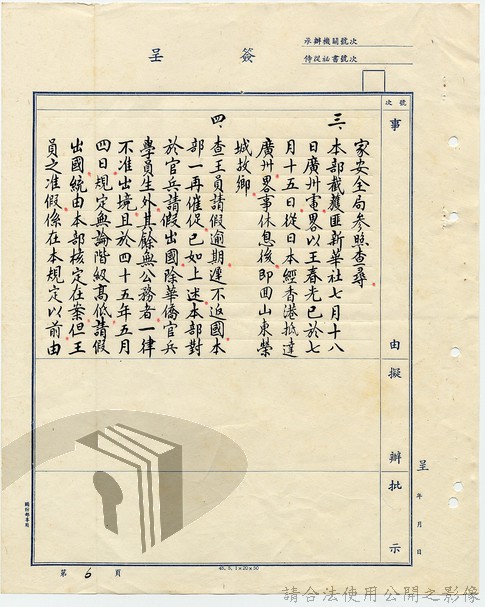 承辦機關號次
侍從祕書號次
簽呈
號次
事
由擬
辦批
示
呈
年月日
家安全局參照查尋
三、本部截獲匪新華社七月十八
日廣州電畧以王春光已於七
月十五日從日本經香港抵達
廣州畧事休息後即回山東榮
城故鄉
四、查王員請假逾期遲不返國本
部一再催促已如上述本部對
於官兵請假出國除華僑官兵
學員生外其餘無公務者一律
不准出境且於四十五年五月
四日規定無論階級高低請假
出國統由本部核定在案但王
員之准假係在本規定以前由
第6頁
請合法使用公開之影像